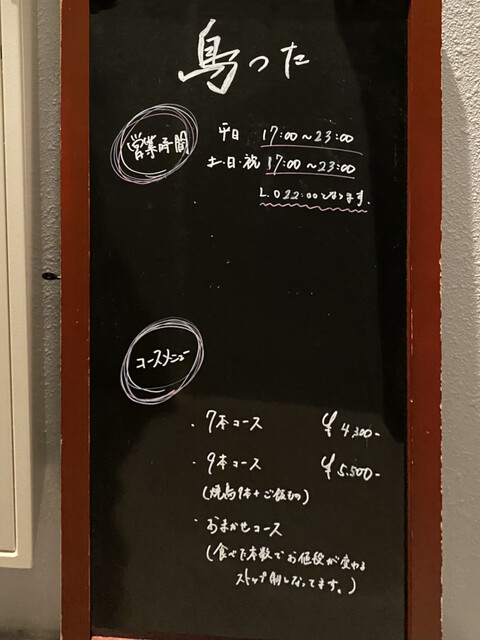 鳥つた
営業時間
平日 17:00~23:00
土・日・祝 17:00~23:00
L.O 22:00となります。
コースメニュー
・7本コース ¥4,300-
・9本コース ¥5,500-
(焼鳥9本+ご飯もの)
・おまかせコース
(食べた本数でお値段が変わる
ストップ制となってます。)